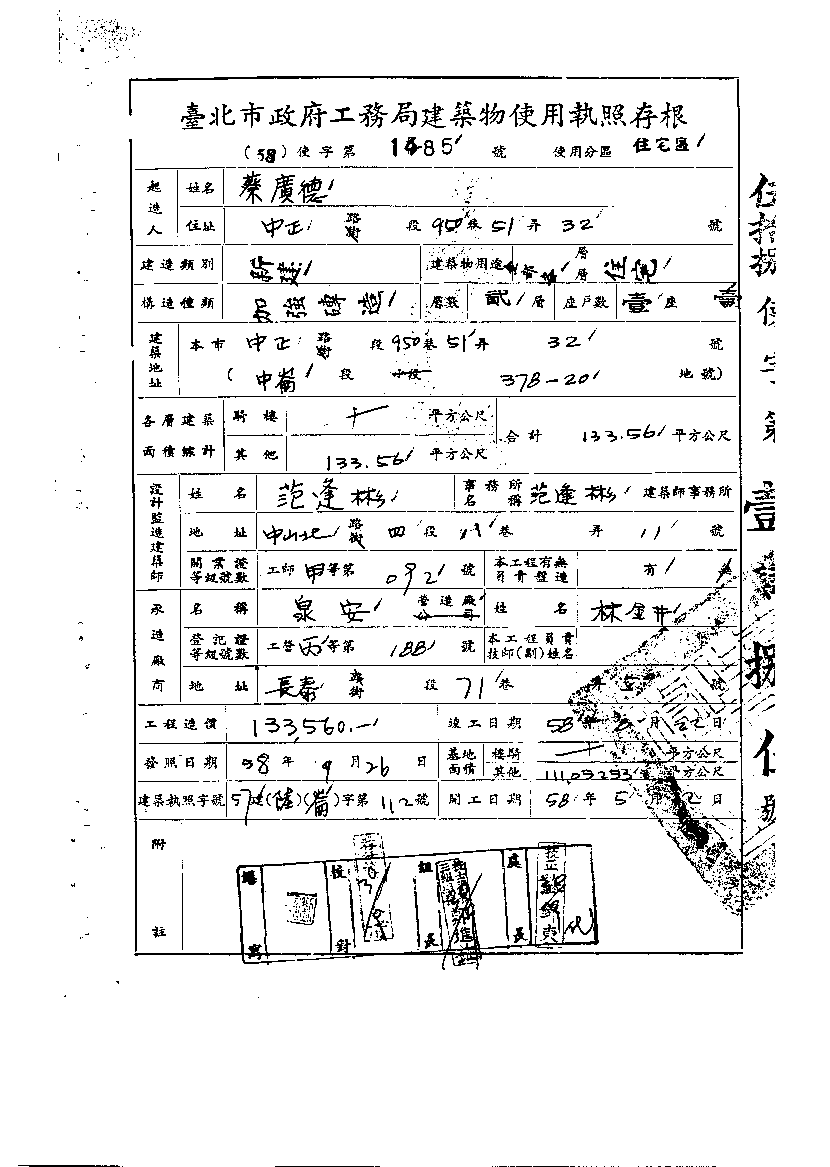 臺北市政府工務局建築物使用執照存根
(58)使字第 1485 號 使用分區 住宅區
起造人 姓名 蔡廣德
住址 中正 路街 段 950 巷 51 弄 32 號
建造類別 新建 建築物用途 層層 住宅
構造種類 加強磚造 層數 貳 層 座戶數 壹 座 壹
建築地址 本市 中正 路街 段 950 巷 51 弄 32 號
(中崙 段 小段 378-20 地號)
各層建築面積總計 騎樓 平方公尺 合計 133.56 平方公尺
其他 133.56 平方公尺
設計監造建築師 姓名 范逢彬 事務所名稱 范逢彬 建築師事務所
地址 中山北 路街 四 段 巷 弄 11 號
開業證等級號數 工師 甲 等第 092 號 本工程有無負責監造 有 無
承造廠商 名稱 泉安 營造廠公司 姓名 林金井
登記證等級號數 工營 丙 等第 188 號 本工程負責技師(副)姓名
地址 長泰 路街 段 71 巷 弄 5 號
工程造價 133,560.- 竣工日期 58 年 8 月 22 日
發照日期 58 年 9 月 26 日 基地面積 騎樓 平方公尺
其他 平方公尺
建築執照字號 57 建(陸)(崙)字第 112 號 開工日期 58 年 5 月 日
附註
組長 處長
校對
伍拾捌使字第壹 捌伍號